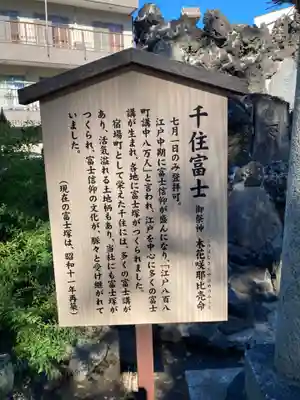 千住富士
御祭神 木花咲那比売命
七月一日のみ登拝可。
江戸中期に富士信仰が盛んになり、「江戸八百八
町講中八万人」と言われ、江戸を中心に多くの富士
講が生まれ、各地に富士塚がつくられました。
宿場町として栄えた千住には、多くの富士講が
あり、活気溢れる土地柄もあり、当社にも富士塚が
つくられ、富士信仰の文化が、脈々と受け継がれて
いました。
(現在の富士塚は、昭和十一年再築)